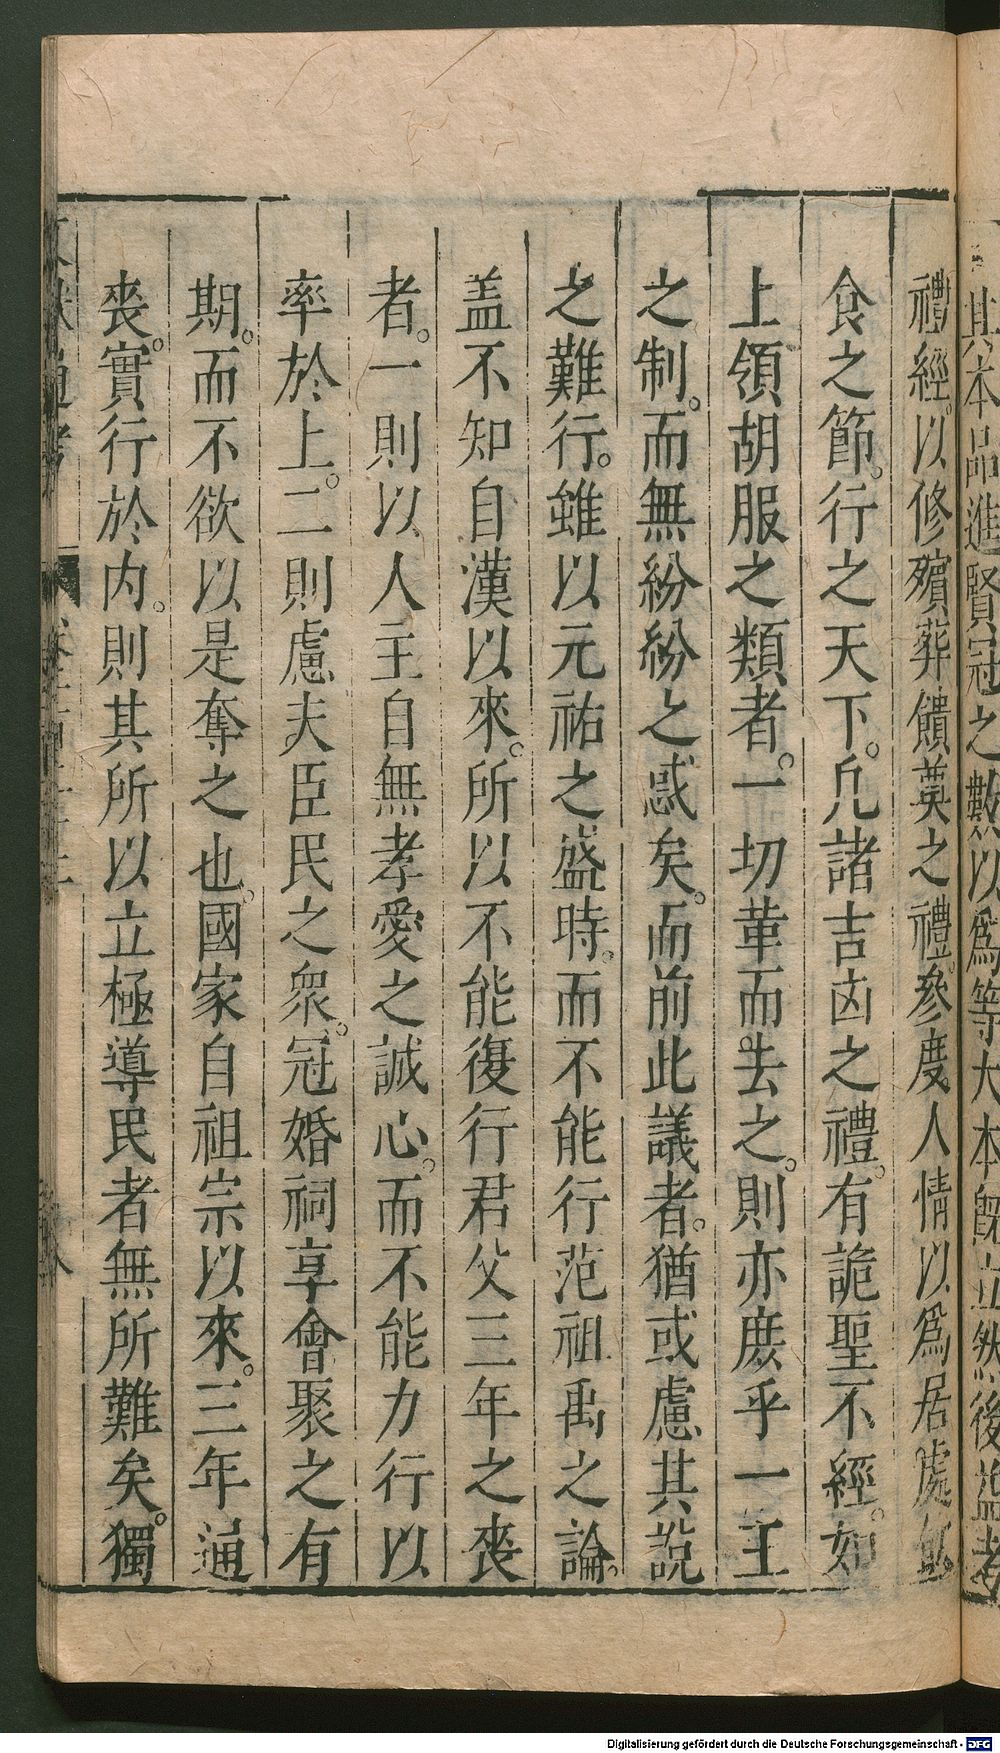 其本品進賢冠之數以爲等大本旣立然後益考
禮經。以修殯葬饋奠之禮。參度人情以爲居處飲
食之節。行之天下。凡諸吉凶之禮。有詭聖不經。如
上領胡服之類者。一切革而去之。則亦庶乎一王
之制。而無紛紛之惑矣。而前此議者。猶或慮其說
之難行。雖以元祐之盛時。而不能行范祖禹之論。
盖不知自漢以來。所以不能復行君父三年之喪
者。一則以人主自無孝愛之誠心。而不能力行以
率於上。二則慮夫臣民之衆。冠婚祠享會聚之有
期。而不欲以是奪之也。國家自祖宗以來。三年通
喪。實行於内。則其所以立極導民者無所難矣。獨
文獻通考
Digitalisierung gefördert durch die Deutsche Forschungsgemeinschaft - DFG